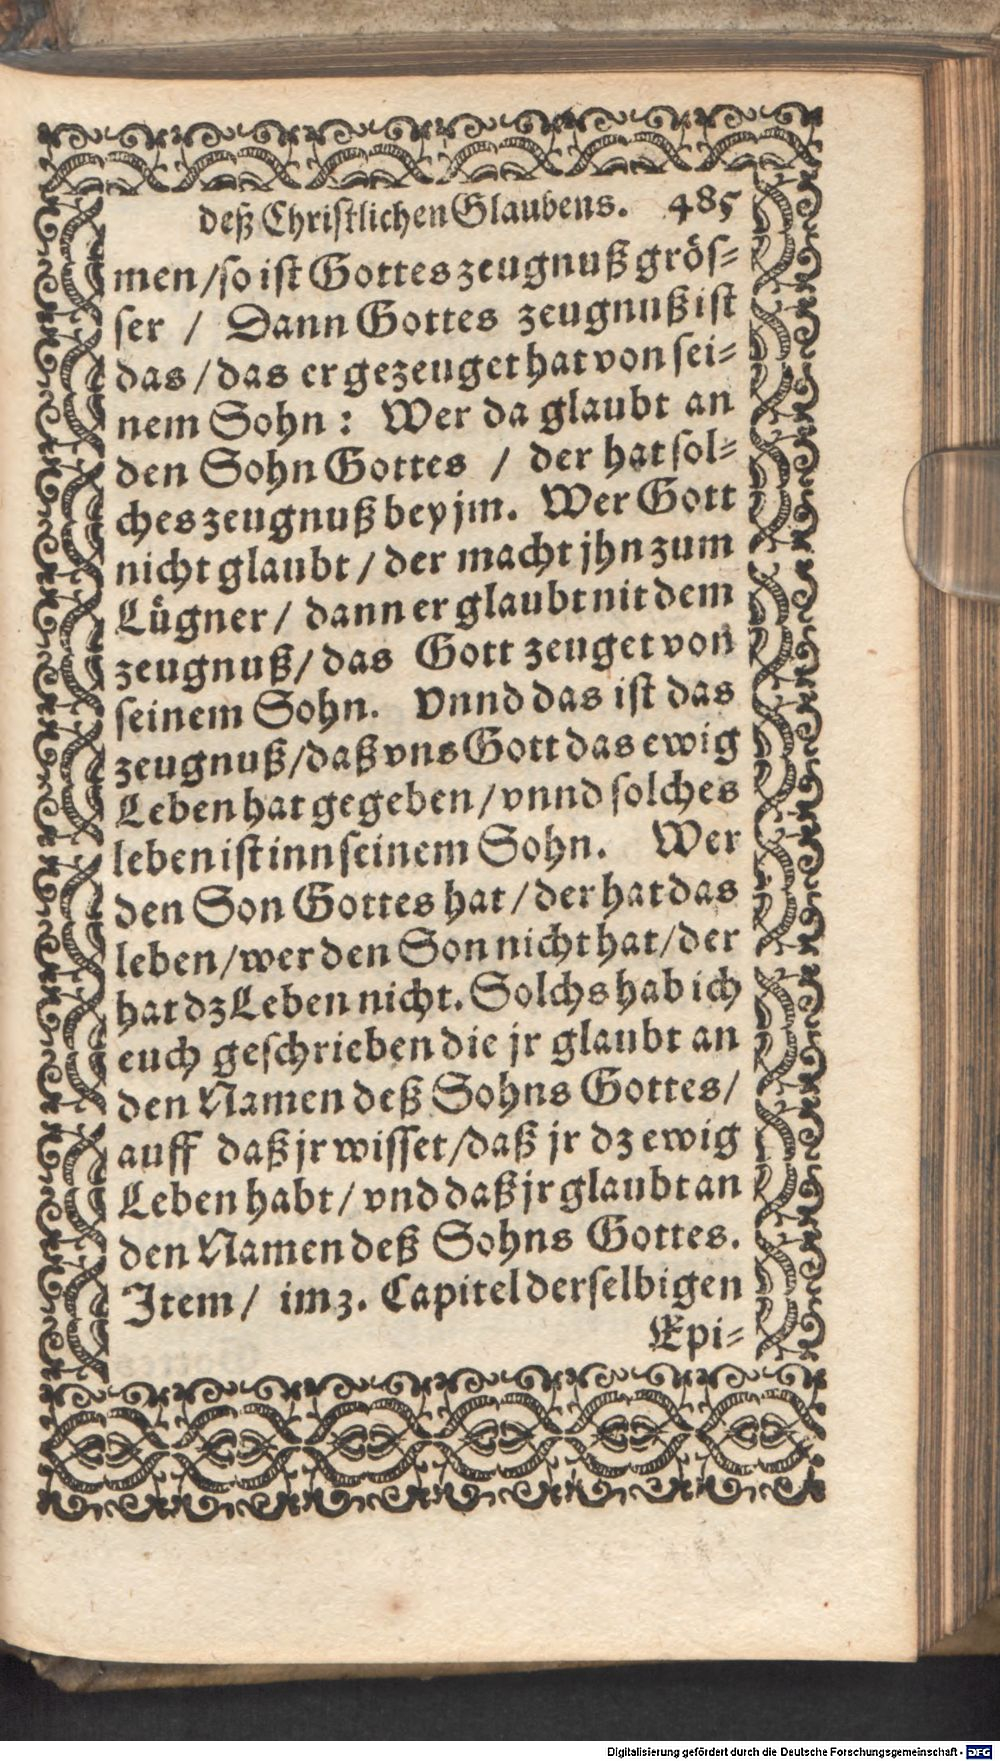 deß Christlichen Glaubens. 485
men /so ist Gottes zeugnuß grös-
ser / Dann Gottes zeugnuß ist
das / das er gezeuget hat von sei-
nem Sohn : Wer da glaubt an
den Sohn Gottes / der hat sol-
ches zeugnuß bey jm. Wer Gott
nicht glaubt / der macht jhn zum
Lügner / dann er glaubt nit dem
zeugnuß / das Gott zeuget von
seinem Sohn. Vnnd das ist das
zeugnuß /daß vns Gott das ewig
Leben hat gegeben / vnnd solches
leben ist inn seinem Sohn. Wer
den Son Gottes hat / der hat das
leben /wer den Son nicht hat /der
hat dz Leben nicht. Solchs hab ich
euch geschrieben die jr glaubt an
den Namen deß Sohns Gottes /
auff daß jr wisset /daß jr dz ewig
Leben habt / vnd daß jr glaubt an
den Namen deß Sohns Gottes.
Item / im 3. Capitel derselbigen
Epi-
Digitalisierung gefördert durch die Deutsche Forschungsgemeinschaft - DFG